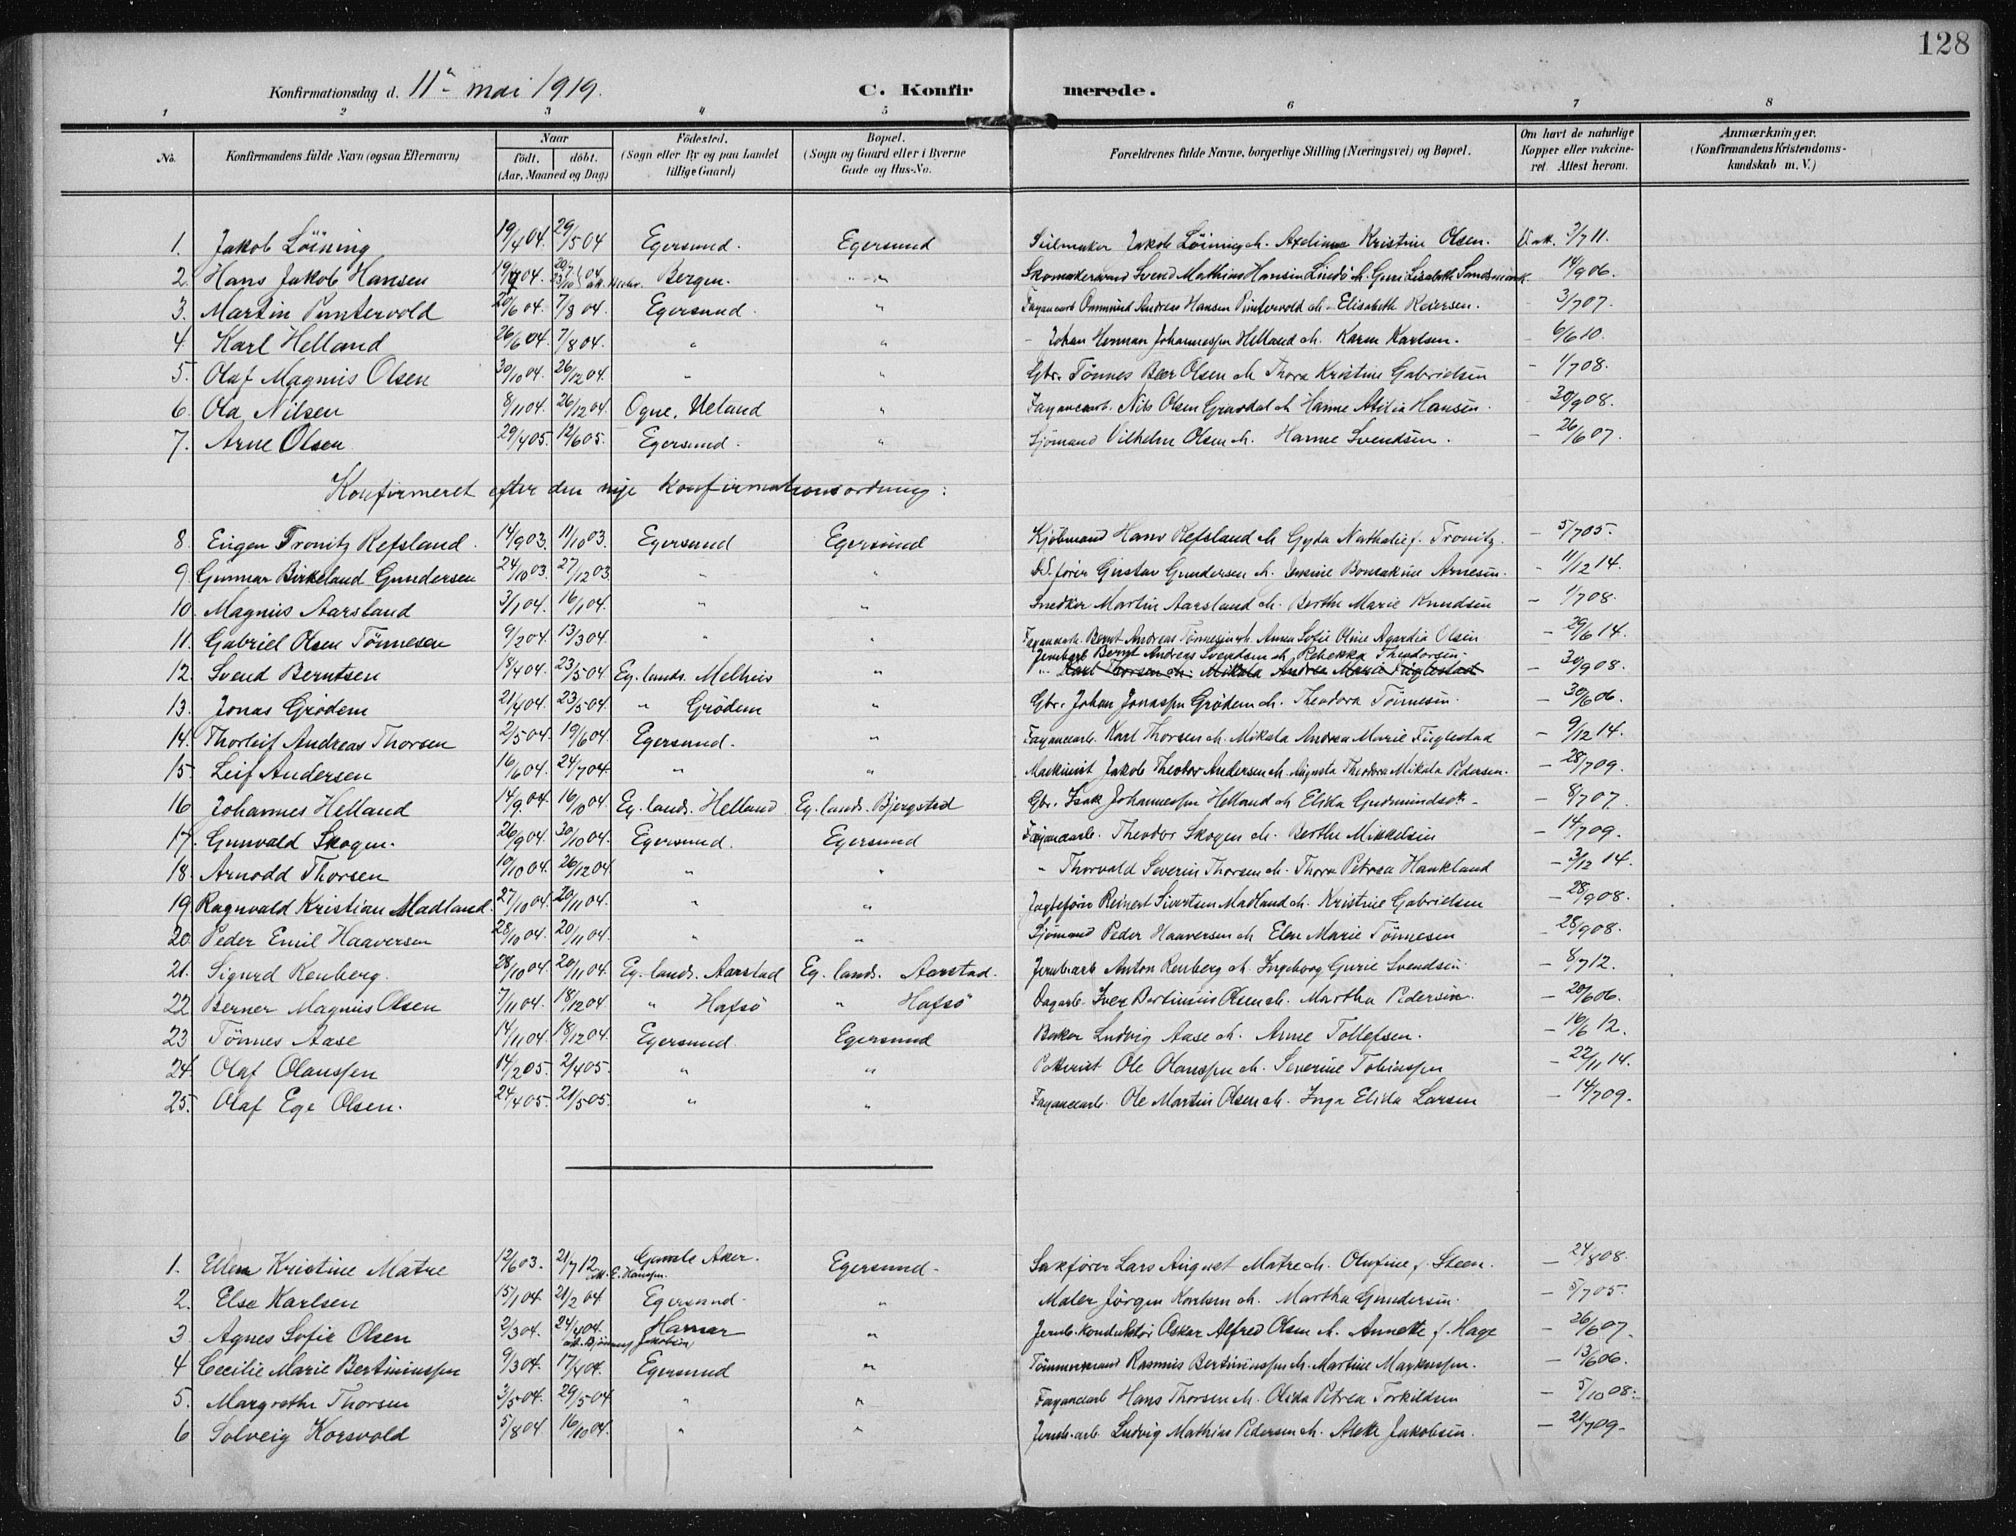 128
Konfirmationsdag d. 11te mai 1919. C. Konfirmerede.
1 2 3 4 5 6 7 8
No. Konfirmandens fulde Navn (ogsaa Efternavn) Naar født. døbt. (Aar, Maaned og Dag) Fødested. (Sogn eller By og paa Landet tillige Gaard) Bopæl. (Sogn og Gaard eller i Byerne Gade og Hus-No. Forældrenes fulde Navne, borgerlige Stilling (Næringsvei) og Bopæl. Om havt de naturlige Kopper eller vakcineret. Attest herom. Anmærkninger. (Konfirmandens Kristendomskundskab m. V.)
1. Jakob Löining 19/4 04. 29/5 04 Egersund. Egersund Seilmaker Jakob Löining & h. Axeliane Kristine Olsen. Vak. 3/7 11.
2. Hans Jakob Hansen 19/4 04. Bergen. " Skomakersvend Svend Mathias Hansen Lindö & h. Guri Lisabeth Sandsmark. 14/9 06.
3. Martin Puntervold 20/6 04. 7/8 04. Egersund. " Fayancearb. Ommund Andreas Hansen Puntervold & h. Elisabeth Reiersen. - 3/7 07.
4. Karl Helland 26/6 04. 7/8 04. " " - Johan Herman Johannessen Helland & h. Karen Karlsen. - 6/6 10.
5. Olaf Magnus Olsen 30/10 04. 26/12 04. " " Gbr. Tönnes Beer Olsen & h. Thora Kristine Gabrielsen - 1/7 08.
6. Ola Nilsen 8/11 04. 26/12 04. Ogne, Ueland " Fayancearb. Nils Olsen Grasdal & h. Hanne Atilia Hansen. 30/9 08.
7. Arne Olsen 29/4 05. 12/6 05. Egersund. " Sjömand Vilhelm Olsen & h. Hanne Svendsen. - 26/6 07.
Konfirmeret efter den nye konfirmationsordning:
8. Eugen Tronitz Refsland. 14/9 03. 11/10 03. Egersund Egersund Kjöbmand Hans Refsland & h. Gyda Nathalie f. Tronitz. - 5/7 05.
9. Gunnar Birkeland Gundersen 24/10 03. 27/12 03. " " D.S. förer Gustav Gundersen & h. Bonsakine Arnesen. - 11/12 14.
10. Magnus Aarsland 3/1 04. 16/1 04. " " Snedker Martin Aarsland & h. Berthe Marie Knudsen - 1/7 08.
11. Gabriel Olsen Tönnesen 9/2 04. 13/3 04. " " Fayancearb. Bernt Andreas Tönnesen & h. Anna Sofie Oline Agardia Olsen - 29/6 14.
12. Svend Berntsen 18/4 04. 23/5 04 Eg. lands. Melhus " Jernbarb. Bernt Andreas Svendsen & h. Rebekka Theodorsen. - 30/9 08.
" Karl Thorsen & h. Mikala Andrea Marie Fuglestad
13. Jonas Grödem 21/4 04. 23/5 04. " Grödem " Gbr. Johan Jonassen Grödem & h. Theodora Tönnesen. - 30/6 06.
14. Thorleif Andreas Thorsen 2/5 04. 19/6 04. Egersund. " Fayancearb. Karl Thorsen & h. Mikala Andrea Marie Fuglestad - 9/12 14.
15. Leif Andersen 16/6 04. 24/7 04. " " Maskinist Jakob Theodor Andersen & h. Augusta Theodora Mikala Pedersen. - 28/7 09.
16 Johannes Helland 14/9 04. 16/10 04. Eg. lands. Helland Eg. lands. Bjergstad Gbr. Isak Johannessen Helland & h. Elida Gudmundsen - 8/7 07.
17. Gunvald Skogen. 26/9 04. 30/10 04. Egersund. Egersund Fayancearb. Theodor Skogen & h. Berthe Mikkelsen - 14/7 09.
18. Arnodd Thorsen 10/10 04. 26/12 04. " " " Thorvald Severin Thorsen & h. Thora Petrea Haukland - 3/12 14.
19. Ragnvald Kristian Madland. 27/10 04. 20/11 04. " " Jagtförer Reinert Sivertsen Madland & h. Kristine Gabrielsen - 28/9 08.
20. Peder Emil Haaversen 28/10 04. 20/11 04. " " Sjömand Peder Haaversen & h. Elen Marie Tönnesen - 28/9 08.
21. Sigurd Renberg. 28/10 04. 20/11 04. Eg. lands. Aarstad Eg. lands. Aarstad. Jernbarb. Anton Renberg & h. Ingeborg Gurie Svendsen - 8/7 12.
22. Berner Magnus Olsen 7/11 04. 18/12 04. " Hafsö " Hafsö Dagarb. Iver Bertinius Olsen & h. Martha Pedersen. - 20/6 06.
23 Tönnes Aase 14/11 04. 18/12 04. Egersund. Egersund Baker Ludvig Aase & h. Arne Tollefsen. - 16/6 12.
24. Olaf Olaussen 14/2 05. 2/4 05. " " Ole Olaussen & h. Severine Tobiassen - 22/11 14.
25. Olaf Ege Olsen. 24/4 05. 21/5 05. " " Fayancearb. Ole Martin Olsen & h. Inga Elida Larsen - 14/7 09.
1. Ellen Kristine Matre 12/6 03. 21/7 12 Gamle Aker. Egersund. Sakförer Lars August Matre & h. Olufine f. Steen. - 24/8 08.
2. Else Karlsen 15/1 04. 21/2 04 Egersund. " Maler Jörgen Karlsen & h. Martha Gundersen. - 5/7 05.
3 Agnes Sofie Olsen 2/3 04. 24/4 04. Hamar " Jernb.konduktör Oskar Alfred Olsen & h. Annette f. Hage - 26/6 07.
4 Cecilie Marie Bertiniussen 9/3 04. 17/4 04. Egersund " Tömmermand Rasmus Bertiniussen & h. Martine Markussen. - 13/6 06.
5. Margrethe Thorsen 3/5 04. 29/5 04 " " Fayancearb Hans Thorsen & h. Olida Petrea Torkildsen - 5/10 08.
6 Solveig Korsvold 5/8 04 16/10 04. " " Jernb.arb. Ludvig Mathias Pedersen & h. Alette Jakobsen. - 21/7 09.